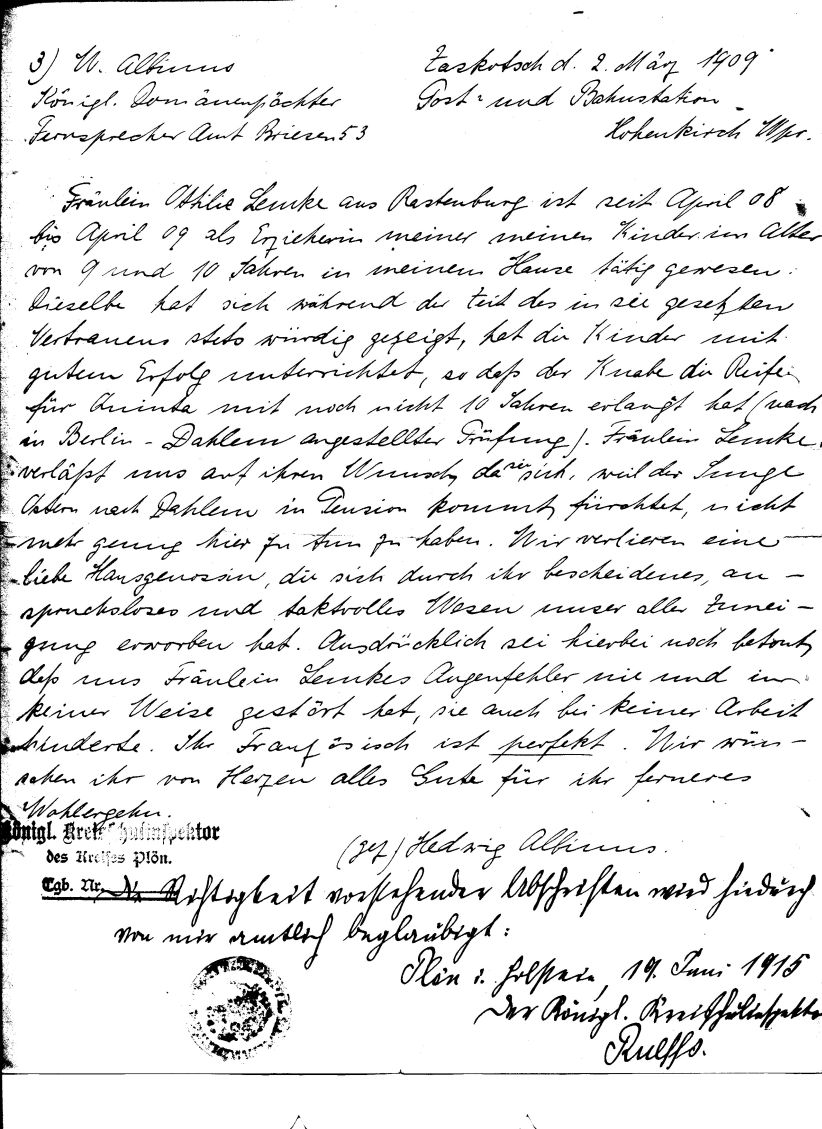 3) W. Albinus
Königl. Domänenpächter
Fernsprecher Amt Briesen 53
Zaskotsch d. 2. März 1909
Post- und Bahnstation
Hohenkirch Wpr.
Fräulein Ottilie Lemke aus Rastenburg ist seit April 08
bis April 09 als Erzieherin meiner meinen Kinder im Alter
von 9 und 10 Jahren in meinem Hause tätig gewesen.
Dieselbe hat sich während der Zeit des in sie gesetzten
Vertrauens stets würdig gezeigt, hat die Kinder mit
gutem Erfolg unterrichtet, so daß der Knabe die Reife
für Quinta mit noch nicht 10 Jahren erlangt hat (nach
in Berlin - Dahlem angestellter Prüfung). Fräulein Lemke
verläßt uns auf ihren Wunsch, da sie sich, weil der Junge
Ostern nach Dahlem in Pension kommt, fürchtet, nicht
mehr genug hier zu tun zu haben. Wir verlieren eine
liebe Hausgenossin, die sich durch ihr bescheidenes, an-
spruchsloses und taktvolles Wesen unser aller Zunei-
gung erworben hat. Ausdrücklich sei hierbei noch betont,
daß uns Fräulein Lemkes Augenfehler nie und in
keiner Weise gestört hat, sie auch bei keiner Arbeit
hinderte. Ihr Französisch ist perfekt. Wir wün-
schen ihr von Herzen alles Gute für ihr ferneres
Wohlergehn.
(gez) Hedwig Albinus.
Königl. Kreisschulinspektor
des Kreises Plön.
Tgb. Nr.
Die Richtigkeit vorstehender Abschriften wird hiedurch
von mir amtlich beglaubigt:
Plön i. Holstein, 19. Juni 1915
Der Königl. Kreisschulinspektor